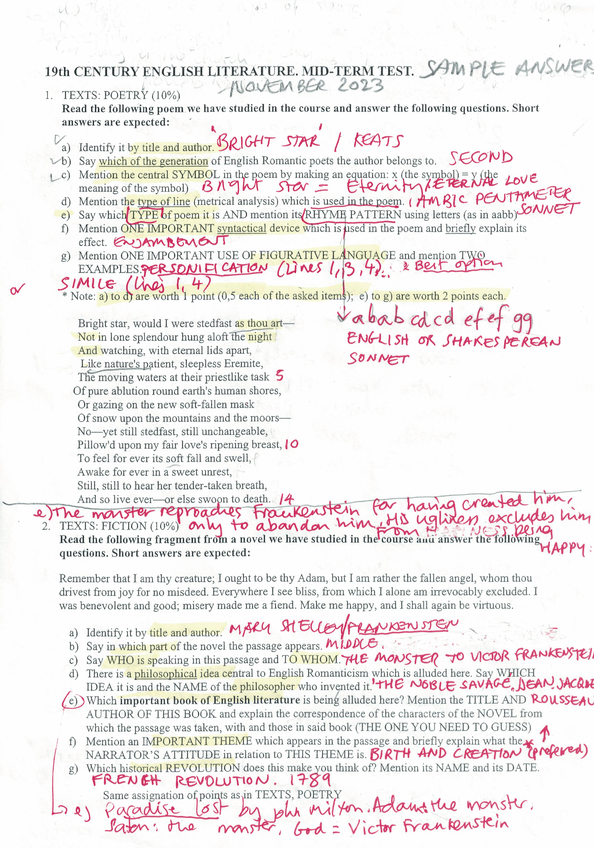 19th CENTURY ENGLISH LITERATURE. MID-TERM TEST. SAMPLE ANSWER
NOVEMBER 2023
1. TEXTS: POETRY (10%)
Read the following poem we have studied in the course and answer the following questions. Short
answers are expected:
a) Identify it by title and author. 'BRIGHT STAR' / KEATS
b) Say which of the generation of English Romantic poets the author belongs to. SECOND
c) Mention the central SYMBOL in the poem by making an equation: x (the symbol) = y (the
meaning of the symbol) Bright star = Eternity/ETERNAL LOVE
d) Mention the type of line (metrical analysis) which is used in the poem. IAMBIC PENTAMETER
e) Say which TYPE of poem it is AND mention its RHYME PATTERN using letters (as in aabb) SONNET
f) Mention ONE IMPORTANT syntactical device which is used in the poem and briefly explain its
effect. ENJAMBEMENT
g) Mention ONE IMPORTANT USE OF FIGURATIVE LANGUAGE and mention TWO
EXAMPLES. PERSONIFICATION (Lines 1, 3, 4).. Best option
or SIMILE (lines 1, 4)
* Note: a) to d) are worth 1 point (0,5 each of the asked items); e) to g) are worth 2 points each.
ababcdcd efef gg
ENGLISH OR SHAKESPEREAN
SONNET
Bright star, would I were stedfast as thou art—
Not in lone splendour hung aloft the night
And watching, with eternal lids apart,
Like nature's patient, sleepless Eremite,
The moving waters at their priestlike task 5
Of pure ablution round earth's human shores,
Or gazing on the new soft-fallen mask
Of snow upon the mountains and the moors—
No—yet still stedfast, still unchangeable,
Pillow'd upon my fair love's ripening breast, 10
To feel for ever its soft fall and swell,
Awake for ever in a sweet unrest,
Still, still to hear her tender-taken breath,
And so live ever—or else swoon to death. 14
e) The monster reproaches Frankenstein for having created him,
only to abandon him, HIS ugliness excludes him
2. TEXTS: FICTION (10%)
FROM HAPINESS BEING
HAPPY:
Read the following fragment from a novel we have studied in the course and answer the following
questions. Short answers are expected:
Remember that I am thy creature; I ought to be thy Adam, but I am rather the fallen angel, whom thou
drivest from joy for no misdeed. Everywhere I see bliss, from which I alone am irrevocably excluded. I
was benevolent and good; misery made me a fiend. Make me happy, and I shall again be virtuous.
a) Identify it by title and author. MARY SHELLEY/FRANKENSTEIN
b) Say in which part of the novel the passage appears. MIDDLE.
c) Say WHO is speaking in this passage and TO WHOM. THE MONSTER TO VICTOR FRANKENSTEIN
d) There is a philosophical idea central to English Romanticism which is alluded here. Say WHICH
IDEA it is and the NAME of the philosopher who invented it. 'THE NOBLE SAVAGE. JEAN JACQUE
ROUSSEAU
e) Which important book of English literature is being alluded here? Mention the TITLE AND
AUTHOR OF THIS BOOK and explain the correspondence of the characters of the NOVEL from
which the passage was taken, with and those in said book (THE ONE YOU NEED TO GUESS)
f) Mention an IMPORTANT THEME which appears in the passage and briefly explain what the
NARRATOR'S ATTITUDE in relation to THIS THEME is. BIRTH AND CREATION (preferred)
g) Which historical REVOLUTION does this make you think of? Mention its NAME and its DATE.
FRENCH REVOLUTION. 1789
Same assignation of points as in TEXTS, POETRY
e) Paradise lost by John Milton. Adam: the monster.
Satan: the monster, God = Victor Frankenstein